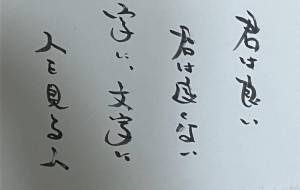 君は良い
君は良くない
字に、文字に
人を見る人